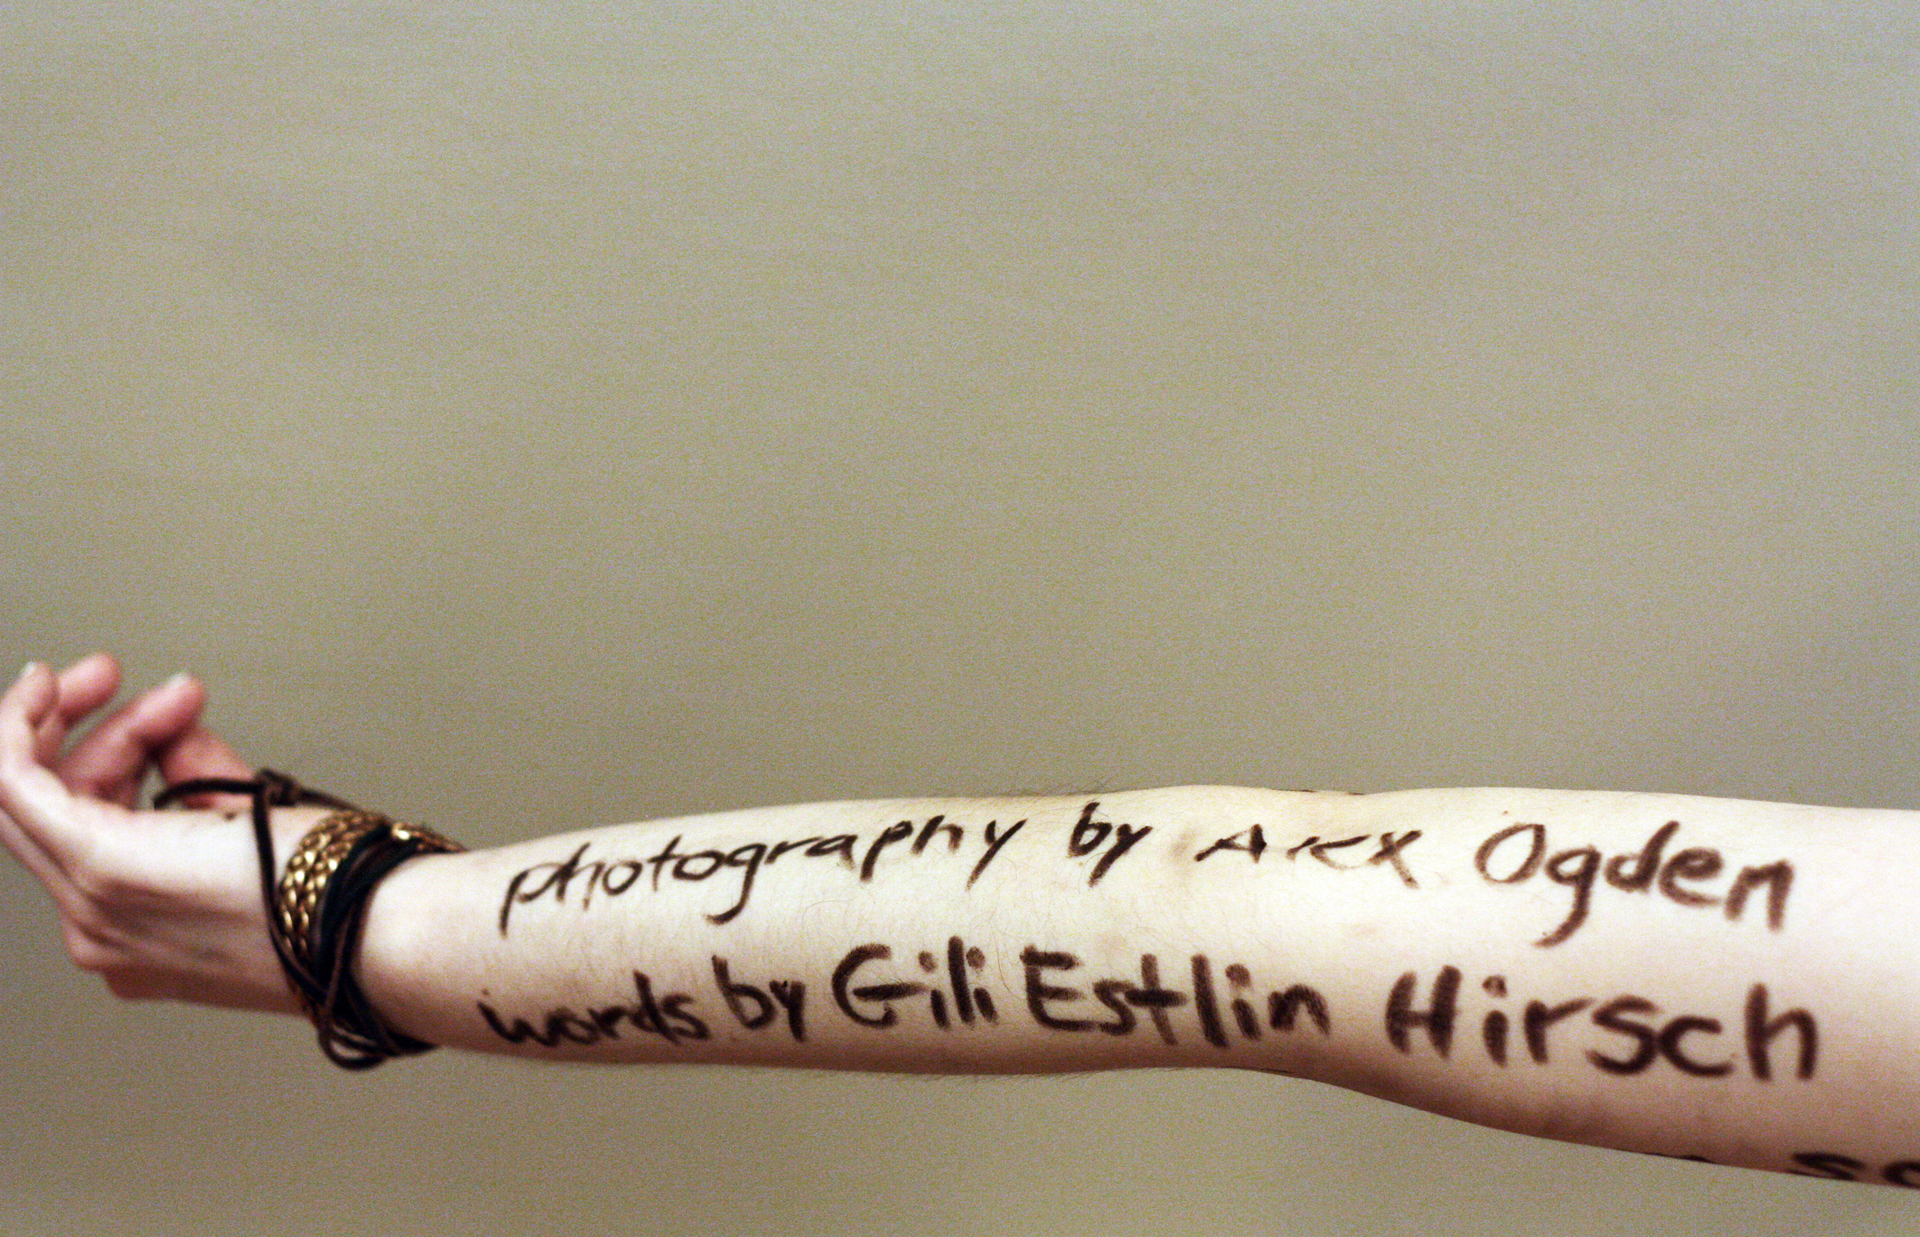 photography by Alex Ogden
words by Gili Estlin Hirsch